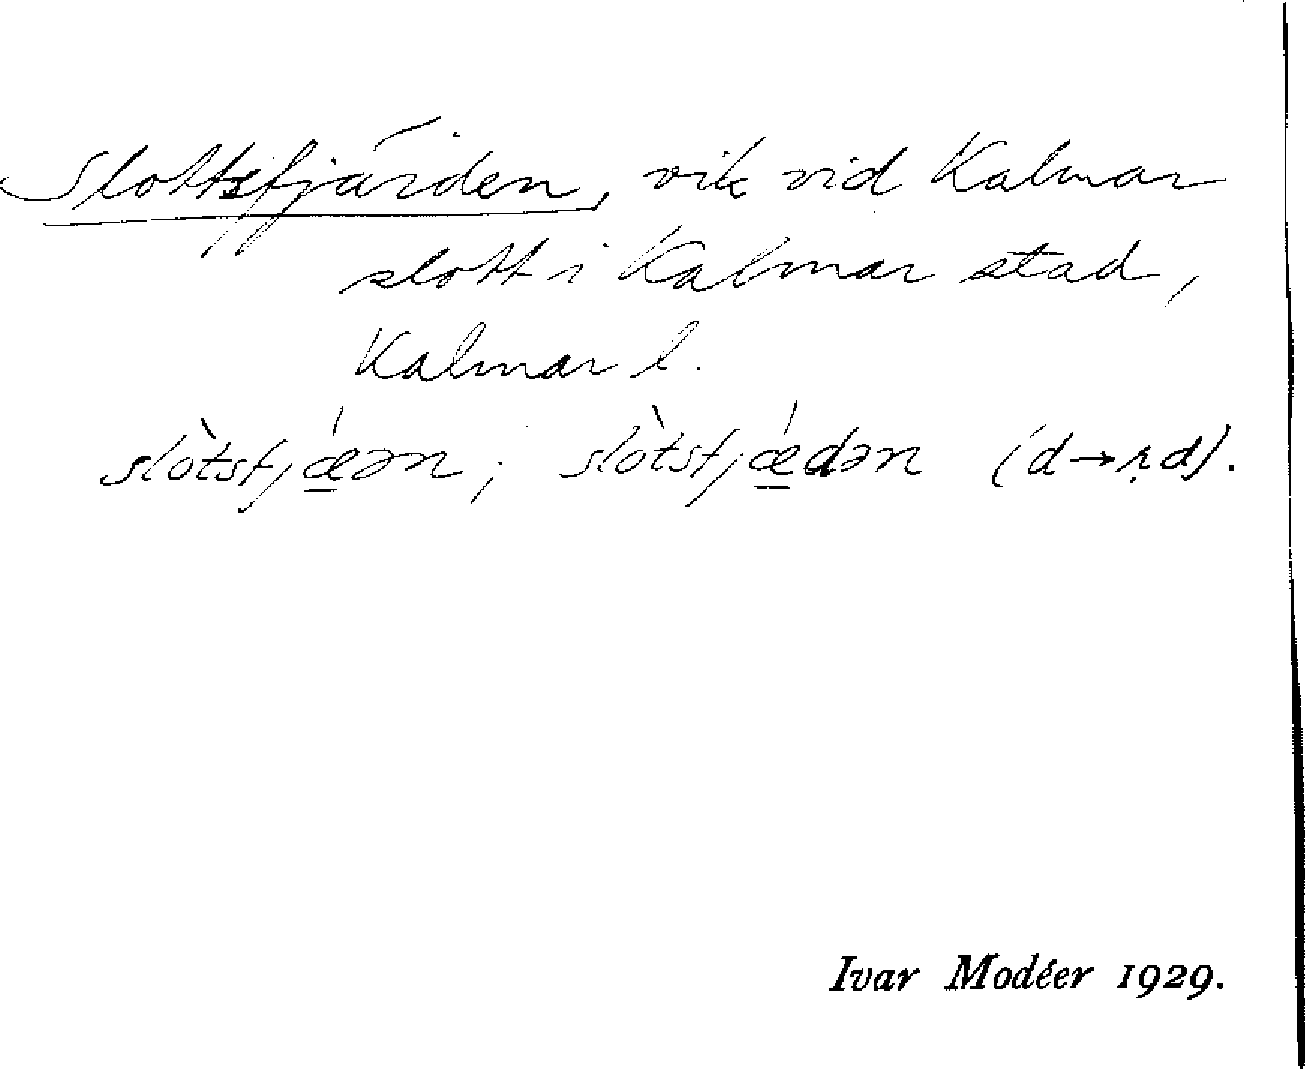 Slottsfjärden, vik vid Kalmar
slott i Kalmar stad,
Kalmar l.
slòtsfjǽ̱ən; slòtsfjǽ̱dən (d→ṛd).
Ivar Modéer 1929.